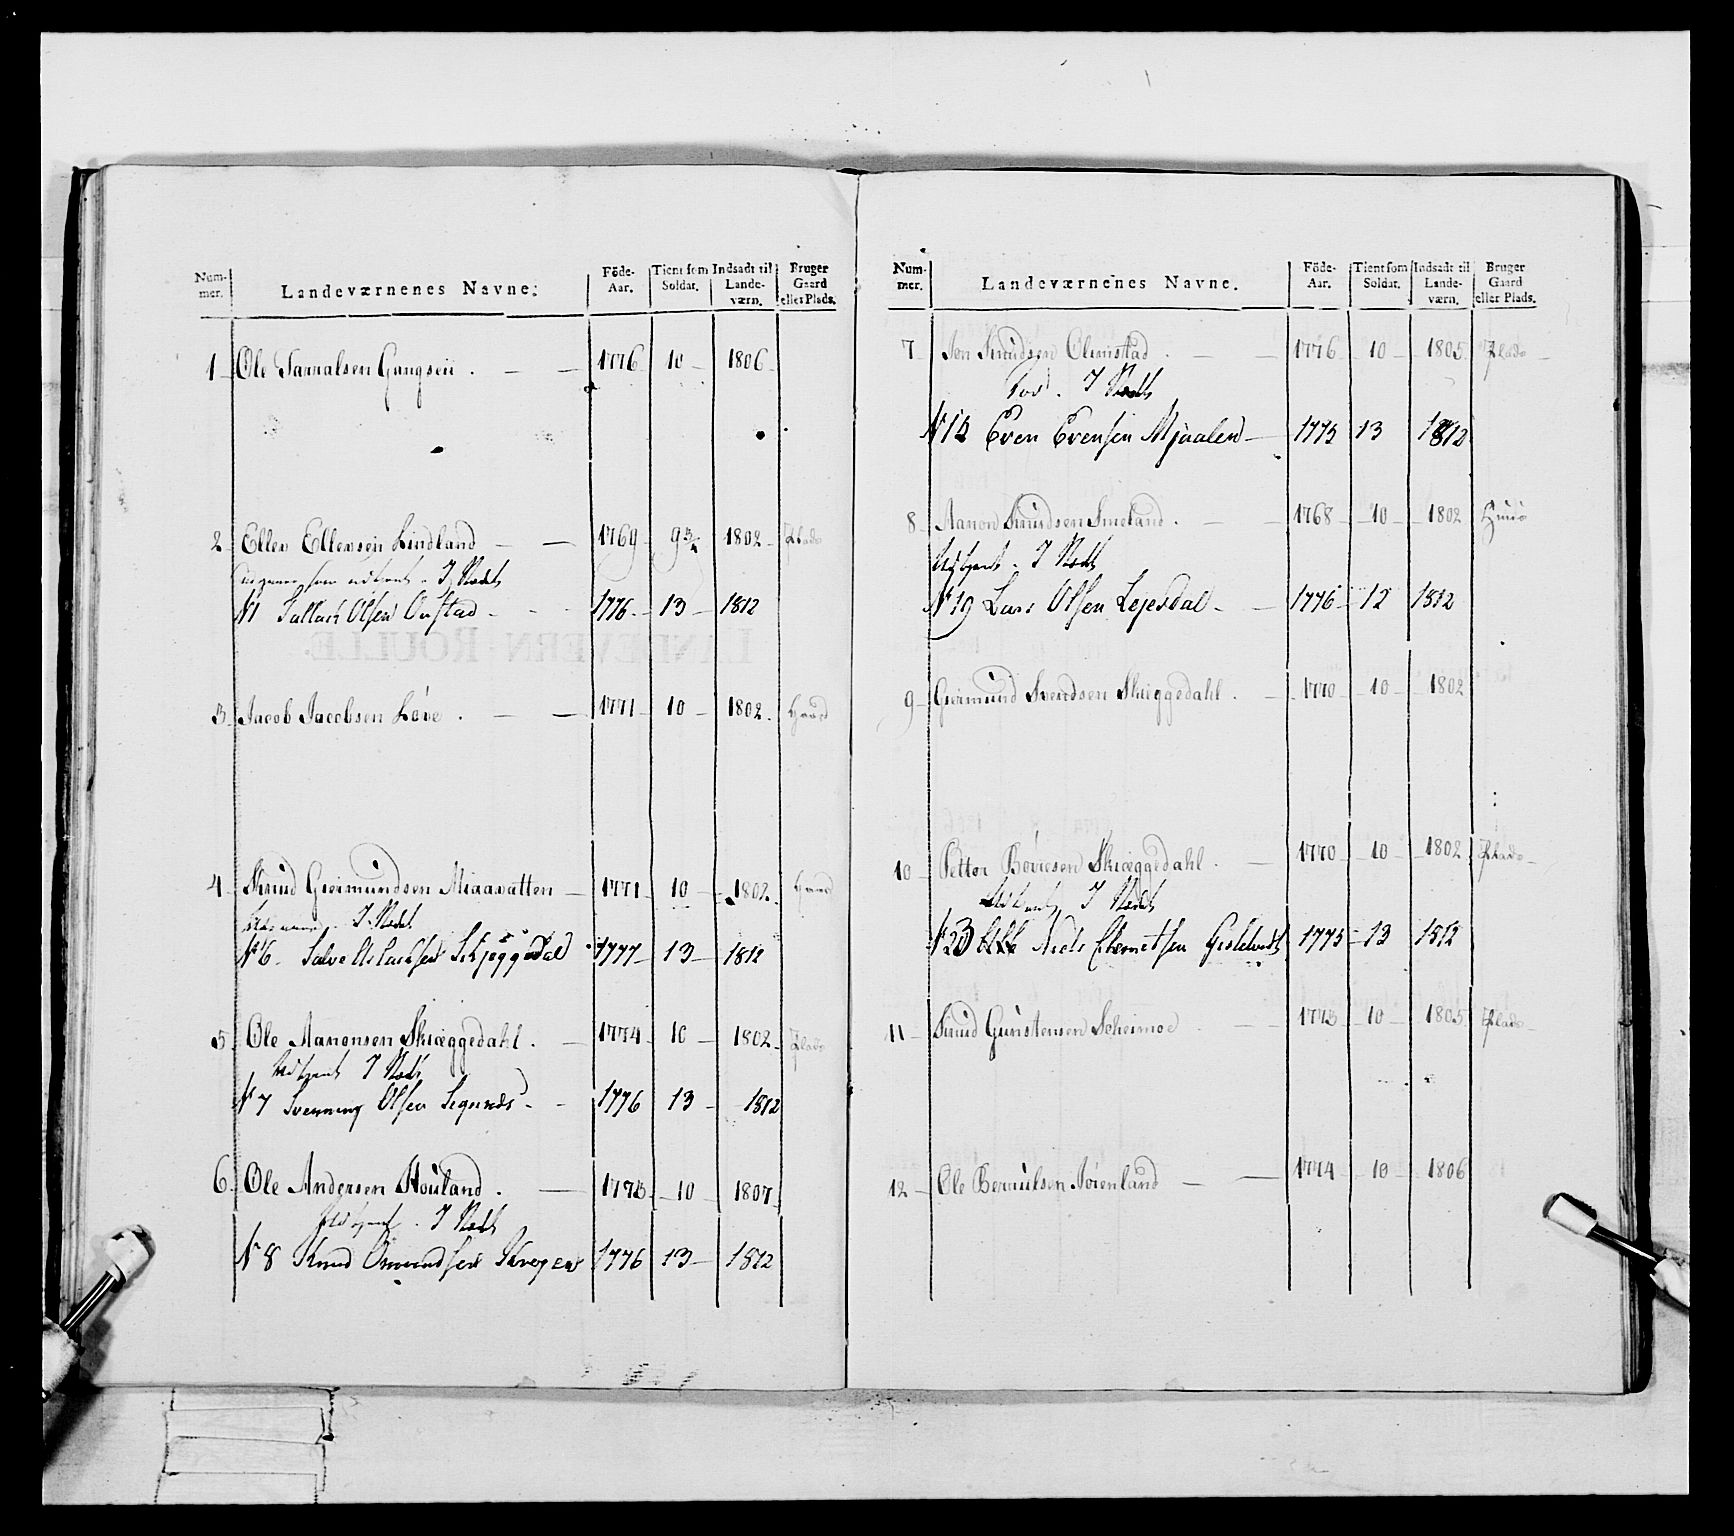 Num-
mer.
Landeværnenes Navne.
Föde-
Aar.
Tient som
Soldat.
Indsadt til
Lande-
værn.
Bruger
Gaard
eller Plads.
1 Ole Tarralsen Gangseii . 1776 10 1806
2 Ellev Ellevsen Lindland 1769 1802 Plads
som udtient. I Stedet
N 1 Tallack Olsen Ovstad 1776 13 1812
3 Jacob Jacobsen Löve . 1771 10 1802 Gaard
4 Knud Giermundsen Miaavatten 1771 10 1802 Gaard
I Stedet
N 6 Salve Aslachsen Schjeggedal 1777 13 1812
5 Ole Aanonsen Skiæggedahl . 1774 10 1802 Plads
Udtient I Stedet
N 7 Svenning Olsen 1776 13 1812
6 Ole Andersen Houland . 1773 10 1807
Udtient . I Stedt
N 8 Knud Omundsen 1776 13 1812
Num-
mer.
Landeværnenes Navne.
Föde-
Aar.
Tient som
Soldat.
Indsadt til
Lande-
værn.
Bruger
Gaard
eller Plads.
7 Jon Knudsen Olimstad . 1776 10 1805 Plads
I Stedt
Even Evensen Mjaaland 1775 13 1812
8 Aanon Knudsen Smeland . 1768 10 1802
Udtient . I Stedt
N 19 Lars Olsen Lejesdal 1776 12 1812
9 Giermund Svendsen Skiæggedahl . 1770 10 1802
10 Petter Börresen Skiæggedahl . 1770 10 1802 Plads
Udtient I Stedet
N 23 Niels 1775 13 1812
11 Knud Gunstensen Scheimoe 1773 10 1805 Plads
12 Ole Berulsen Töienland 1774 10 1806